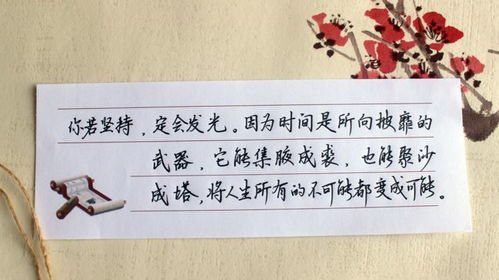 你若坚持，定会发光。因为时间是所向披靡的
武器，它能集腋成裘，也能聚沙
成塔，将人生所有的不可能都变成可能。